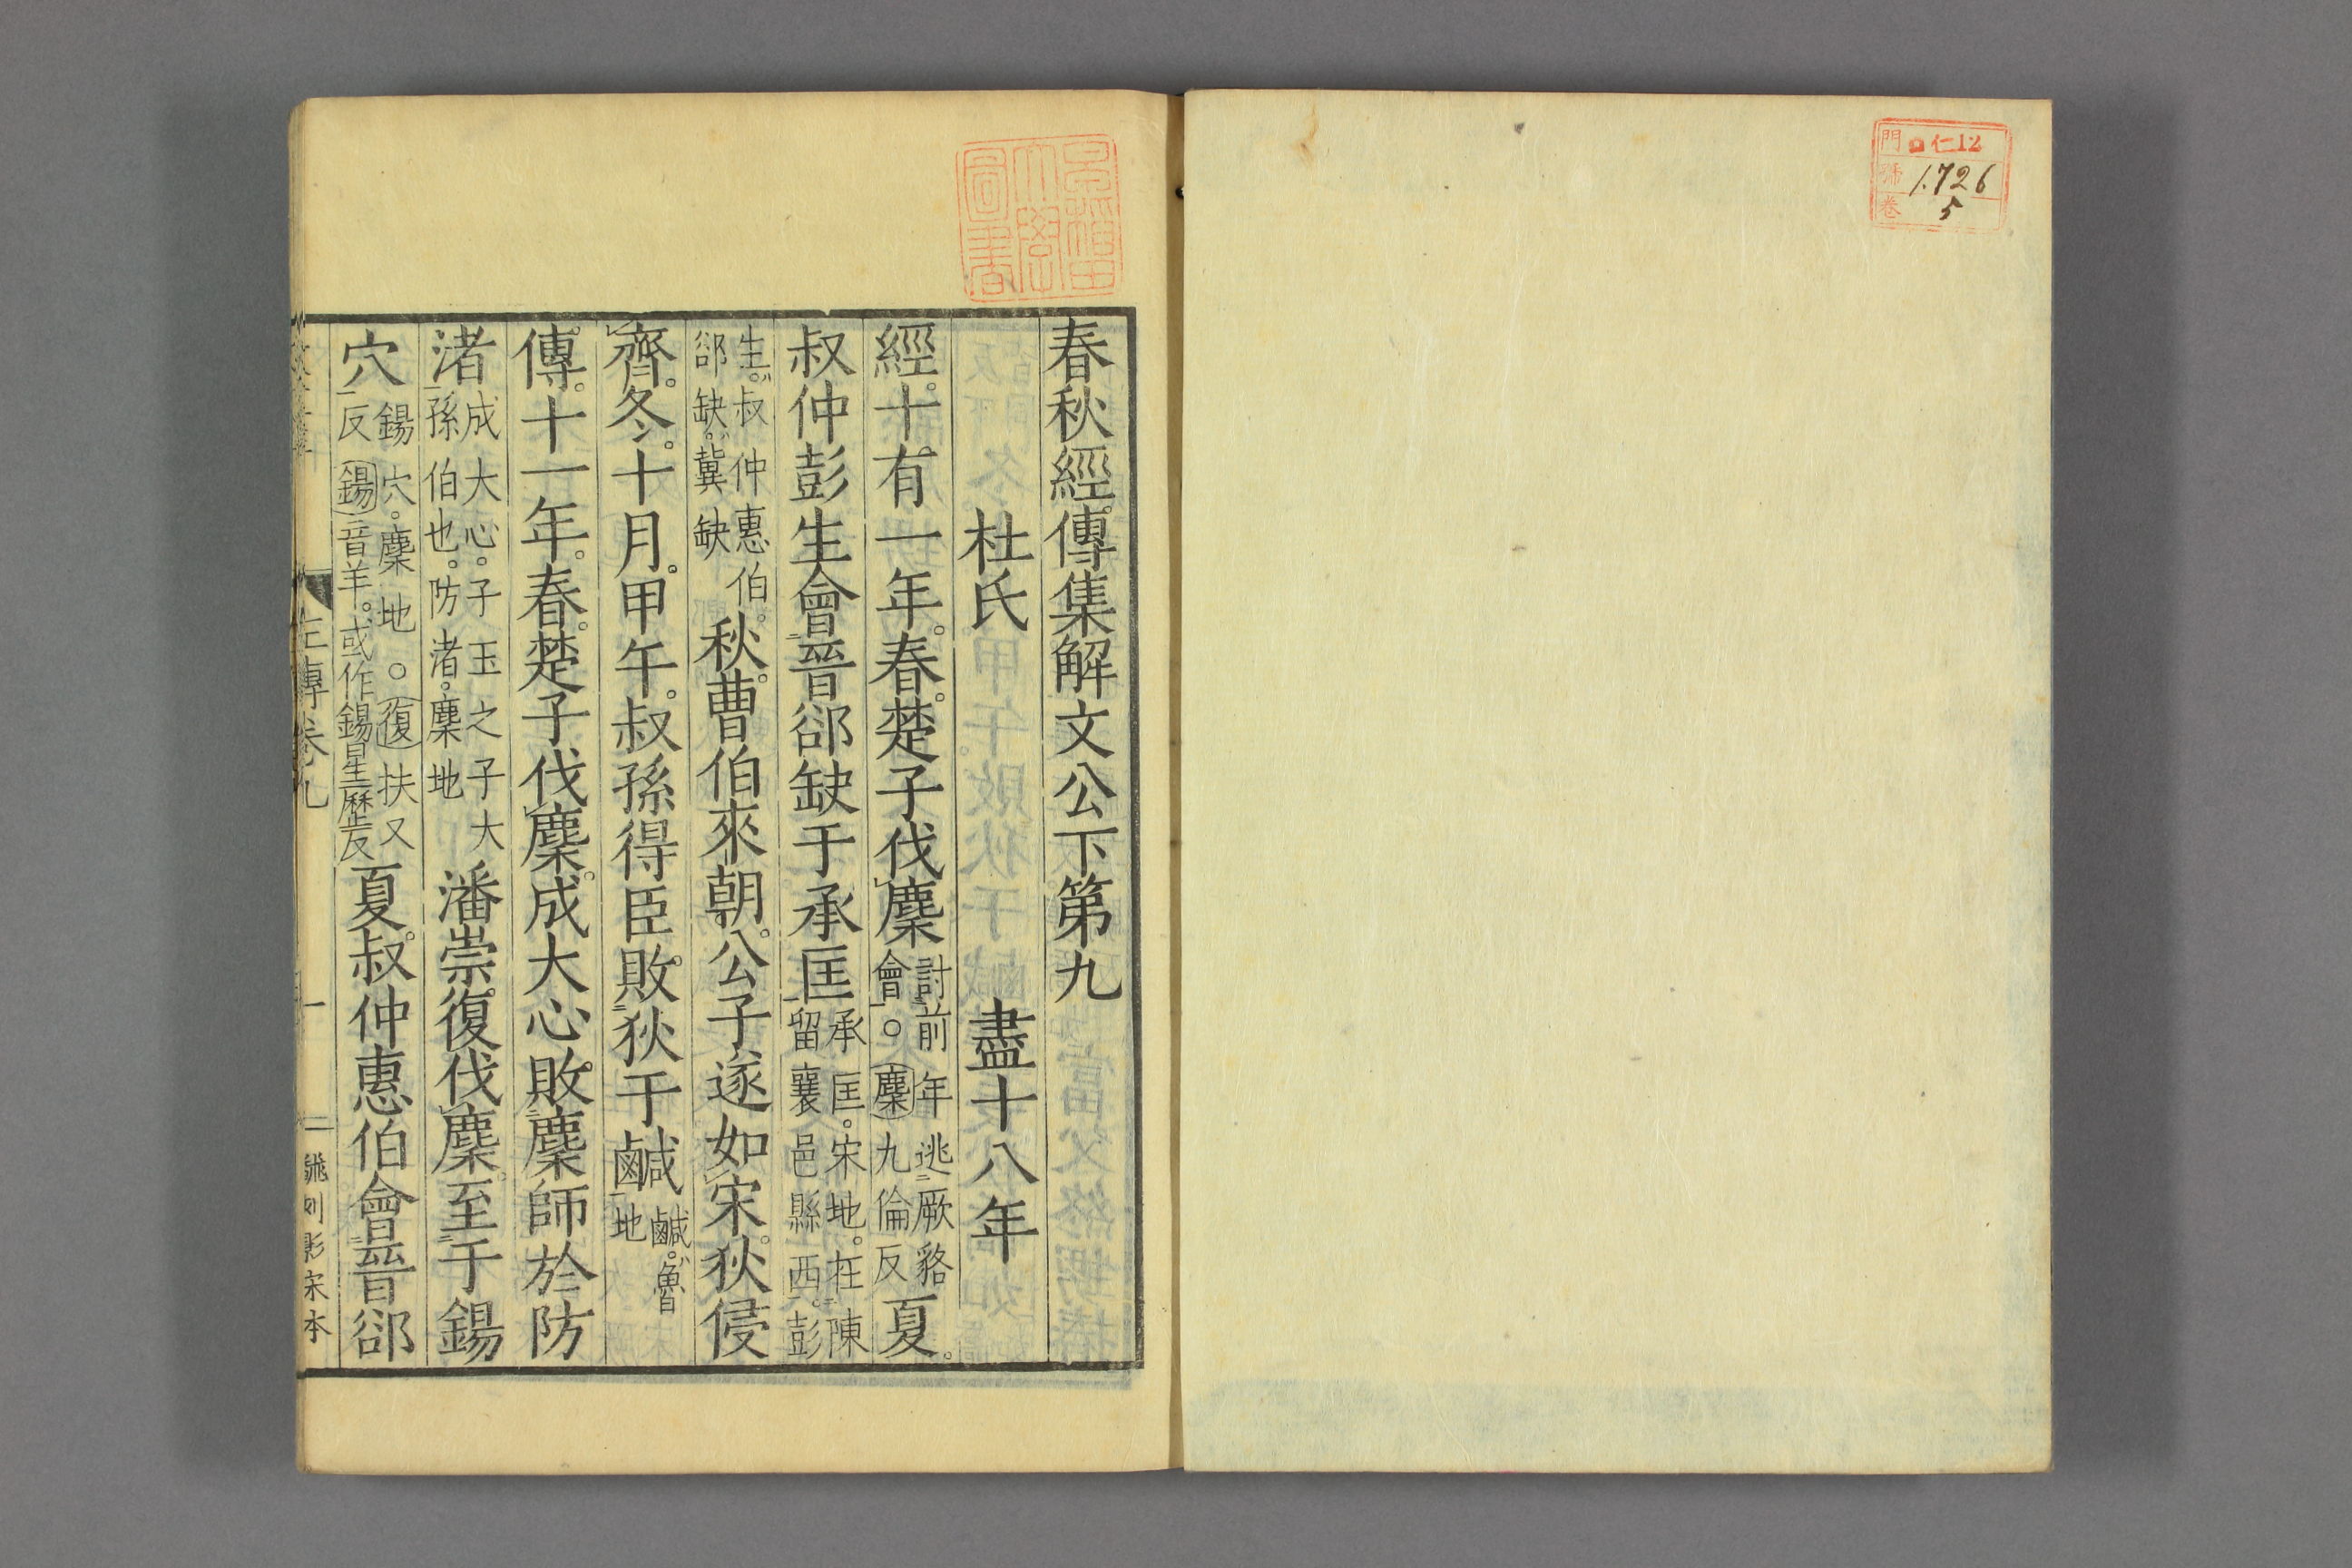 門 仁12
號 1.726
卷 5
早稲田
大學
圖書
春秋經傳集解文公下第九
杜氏 盡十八年
經。十有一年。春。楚子伐麇討前年逃厥貉會。○麇九倫反夏。
叔仲彭生會晉郤缺于承匡承匡。宋地。在陳留襄邑縣西。彭
生。叔仲惠伯。郤缺。冀缺秋。曹伯來朝。公子遂如宋。狄侵
齊。冬。十月。甲午。叔孫得臣敗狄于鹹鹹。魯地
傳。十一年。春。楚子伐麇。成大心敗麇師於防
渚成大心。子玉之子大孫伯也。防渚。麇地潘崇復伐麇。至于鍚
穴鍚穴。麇地○復扶又反鍚音羊。或作錫星歷反夏。叔仲惠伯會晉郤
左傳卷九 一 刻影宋本